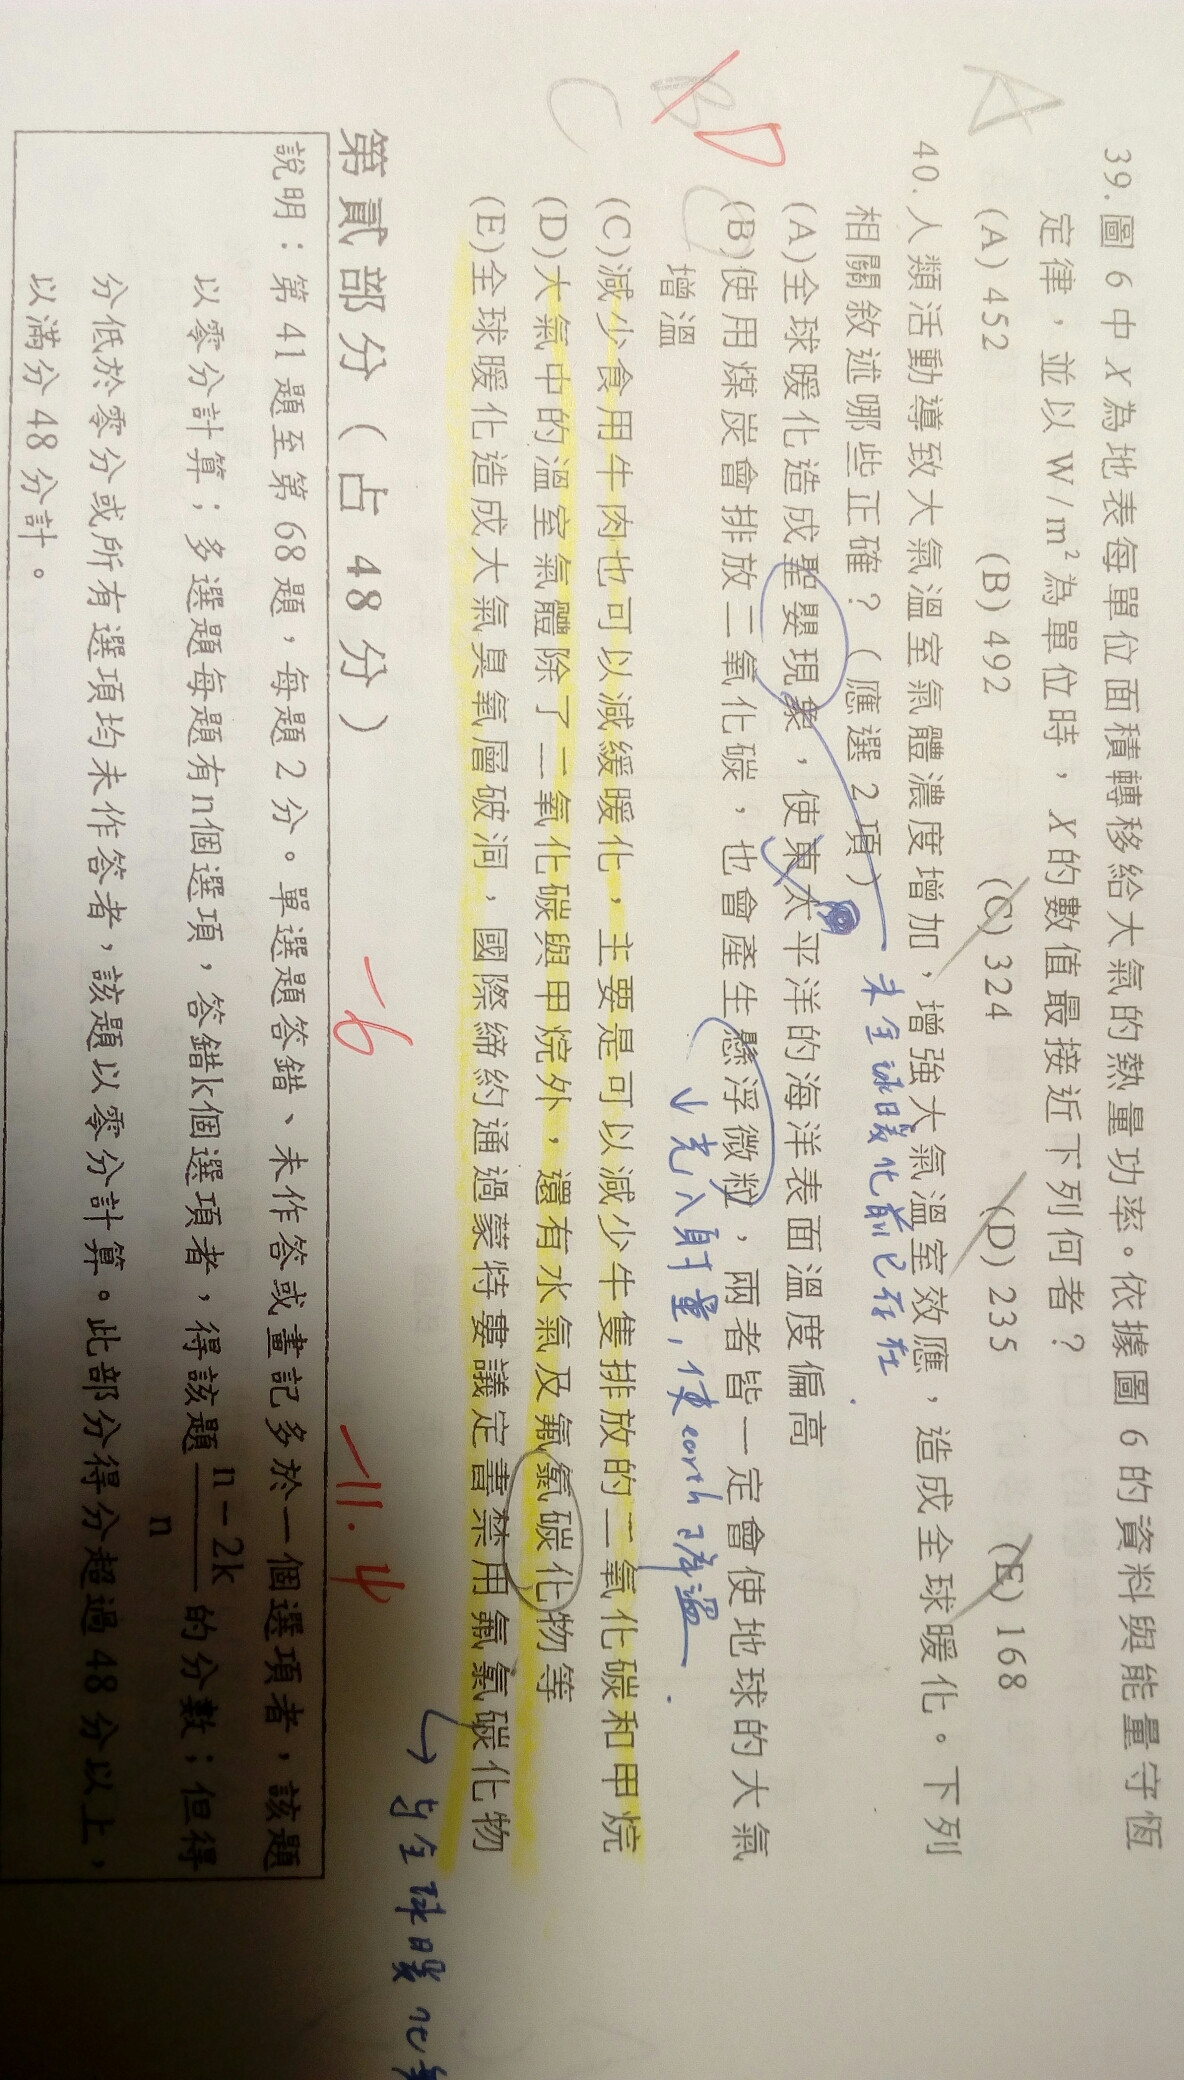 39.圖 6 中 X 為地表每單位面積轉移給大氣的熱量功率。依據圖 6 的資料與能量守恆
定律，並以 W/m² 為單位時，X 的數值最接近下列何者？
(A) 452 (B) 492 (C) 324 (D) 235 (E) 168
A
40.人類活動導致大氣溫室氣體濃度增加，增強大氣溫室效應，造成全球暖化。下列
相關敘述哪些正確？（應選 2 項）
未全球暖化前已存在
(A)全球暖化造成聖嬰現象，使東太平洋的海洋表面溫度偏高
(B)使用煤炭會排放二氧化碳，也會產生懸浮微粒，兩者皆一定會使地球的大氣
增溫
↓光入射量，使earth降溫
B D
C
(C)減少食用牛肉也可以減緩暖化，主要是可以減少牛隻排放的二氧化碳和甲烷
C
(D)大氣中的溫室氣體除了二氧化碳與甲烷外，還有水氣及氟氯碳化物等
(E)全球暖化造成大氣臭氧層破洞，國際締約通過蒙特婁議定書禁用氟氯碳化物
→與全球暖化無
第貳部分（占 48 分）
-6 -11.4
說明：第 41 題至第 68 題，每題 2 分。單選題答錯、未作答或畫記多於一個選項者，該題
以零分計算；多選題每題有n個選項，答錯k個選項者，得該題 n－2k/n 的分數；但得
分低於零分或所有選項均未作答者，該題以零分計算。此部分得分超過 48 分以上，
以滿分 48 分計。